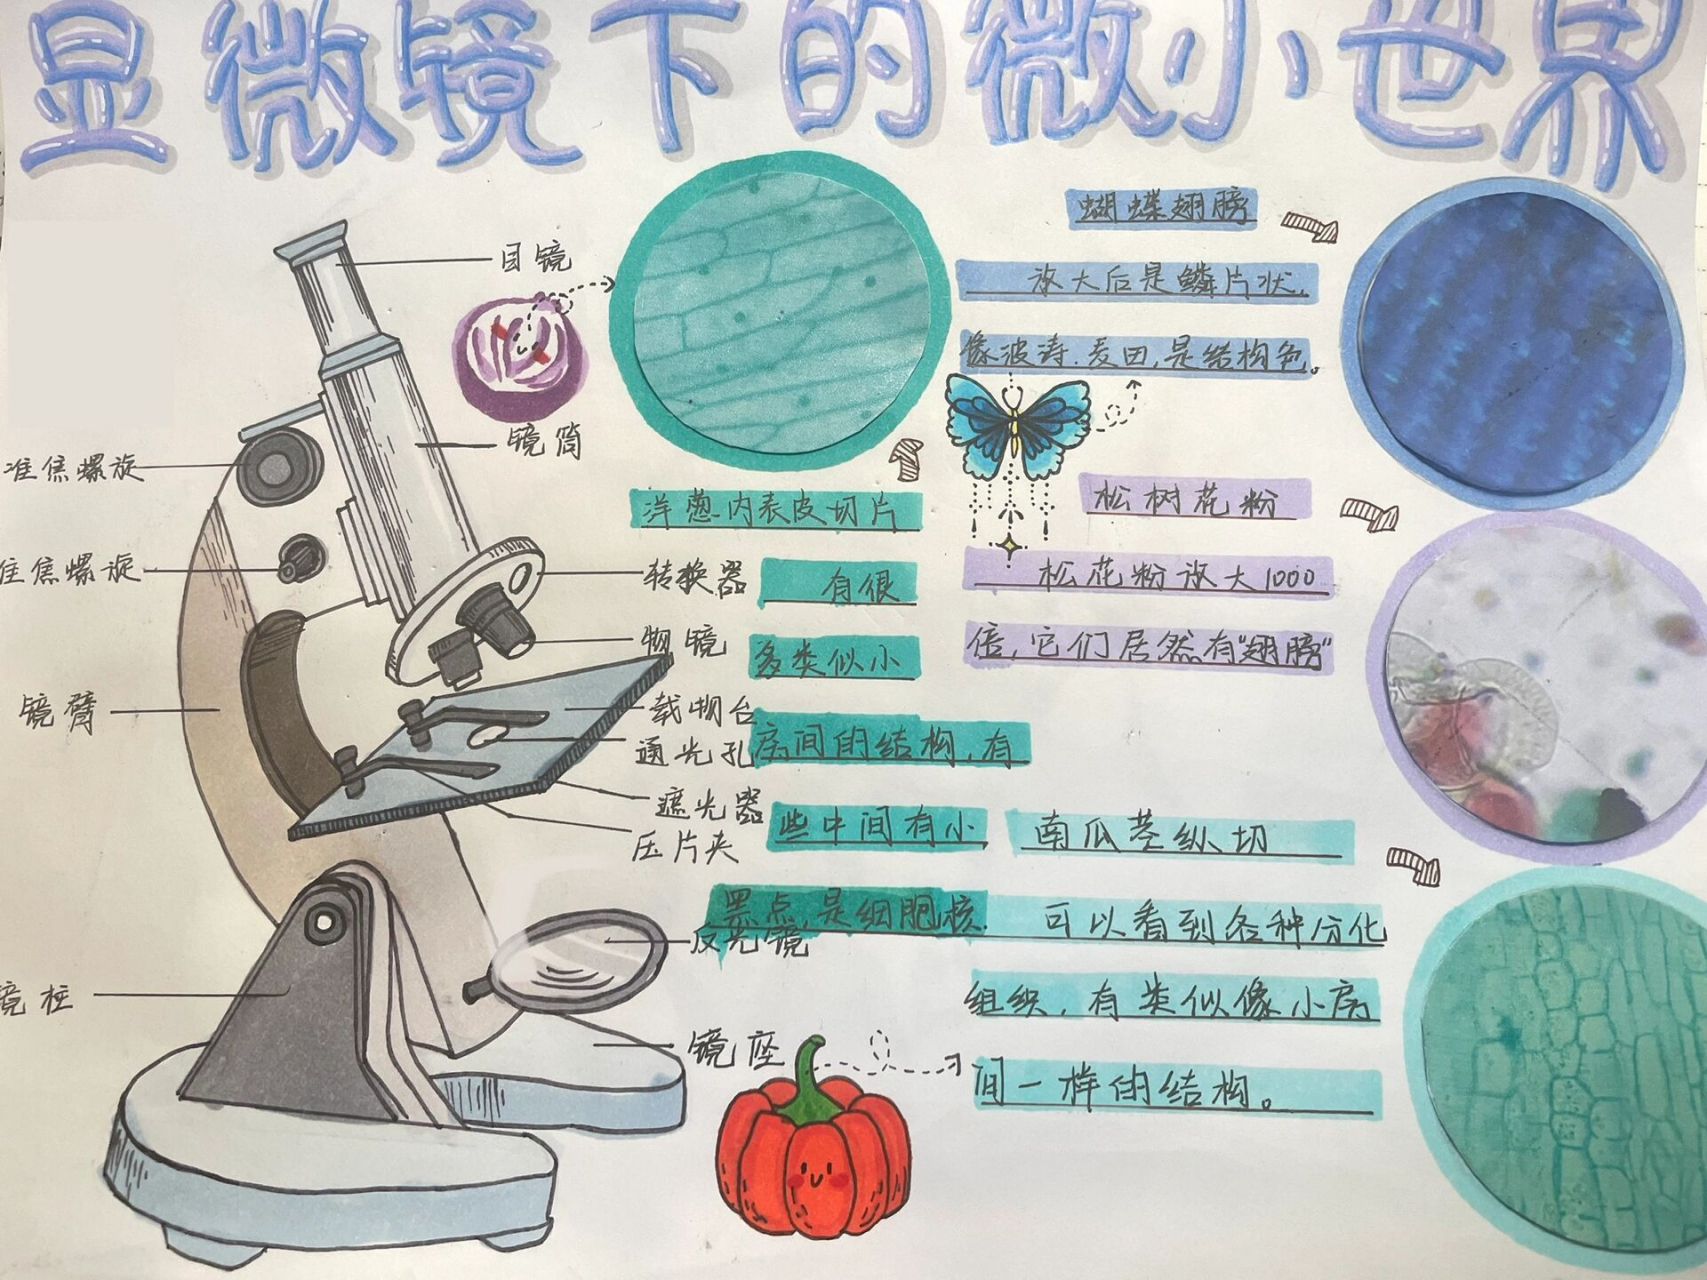 显微镜下的微小世界
目镜
镜筒
准焦螺旋
准焦螺旋
转换器
物镜
镜臂
载物台
通光孔
遮光器
压片夹
反光镜
镜柱
镜座
洋葱内表皮切片
有很
多类似小
房间的结构,有
些中间有小
黑点,是细胞核.
蝴蝶翅膀
放大后是鳞片状,
像波涛.麦田,是结构色。
松树花粉
松花粉放大1000
倍,它们居然有"翅膀"
南瓜茎纵切
可以看到各种分化
组织,有类似像小房
间一样的结构。